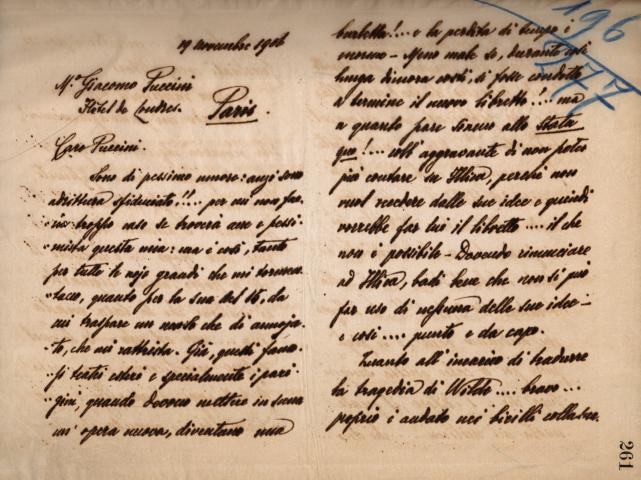 19 novembre 1906
M.º Giacomo Puccini
Hôtel de Londres. Paris.
Caro Puccini.
Sono di pessimo umore: anzi sono
addirittura sfiduciato!!... per cui non fac-
cia troppo caso se troverà acre e pessi-
mista questa mia: ma è così, tanto
per tutte le noje grandi che mi
quanto per la sua del 15, da
cui traspare un che di annoja-
to, che mi rattrista. Già, questi famo-
si teatri esteri e specialmente i pari-
gini, quando devono mettere in scena
un'opera nuova, diventano una
burletta!... e la perdita di tempo è
enorme - Meno male se, durante così
lunga dimora costì, si fosse condotto
a termine il nuovo libretto!... ma
a quanto pare siamo allo statu
quo!... coll'aggravante di non poter
più contare su Illica, perchè non
vuol recedere dalle sue idee e quindi
vorrebbe far lui il libretto.... il che
non è possibile - Dovendo rinunciare
ad Illica, badi bene che non si può
far uso di nessuna delle sue idee -
e così.... punto e da capo.
Quanto all'incarico di tradurre
la tragedia di Wilde.... bravo...
proprio è andato nei birilli colla sua
196
277
261